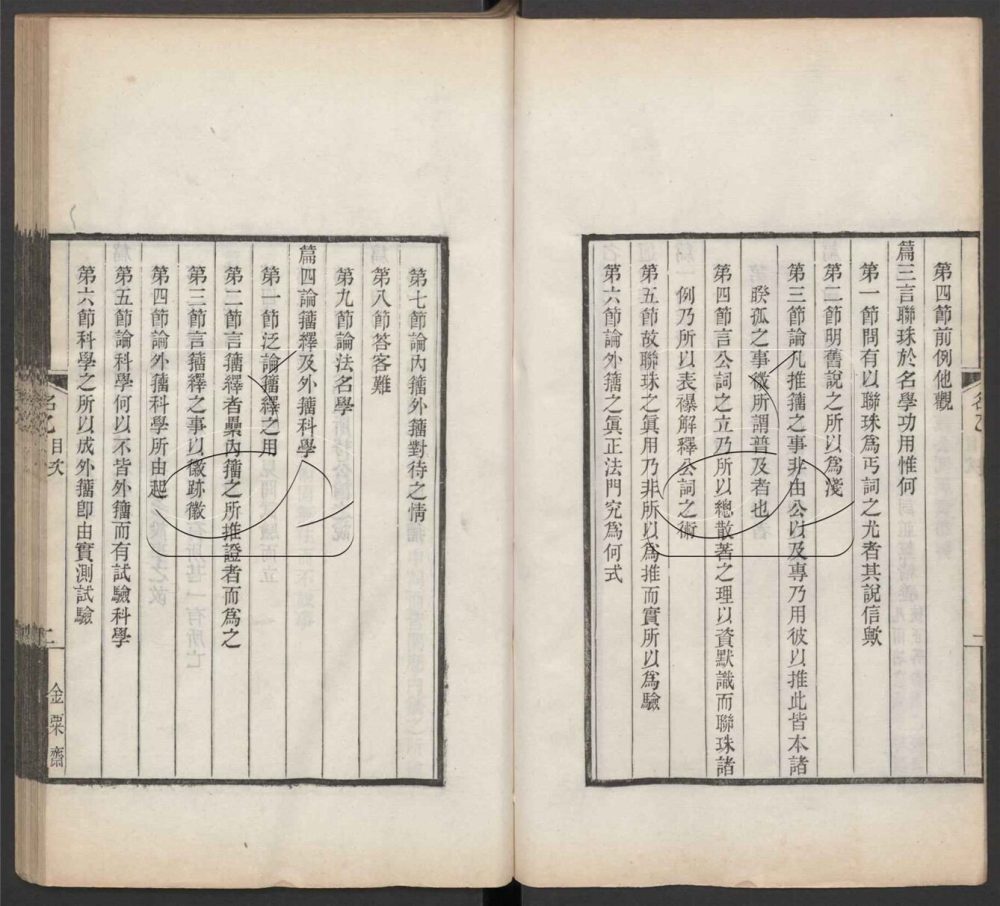 第四節前例他觀
篇三言聯珠於名學功用惟何
第一節問有以聯珠爲丐詞之尤者其說信歟
第二節明舊說之所以爲淺
第三節論凡推籀之事非由公以及專乃用彼以推此皆本諸
睽孤之事徵所謂普及者也
第四節言公詞之立乃所以總散著之理以資默識而聯珠諸
例乃所以表襮解釋公詞之術
第五節故聯珠之眞用乃非所以爲推而實所以爲驗
第六節論外籀之眞正法門究爲何式
第七節論內籀外籀對待之情
第八節答客難
第九節論法名學
篇四論籀繹及外籀科學
第一節泛論籀繹之用
第二節言籀繹者櫐內籀之所推證者而爲之
第三節言籀繹之事以徽跡徽
第四節論外籀科學所由起
第五節論科學何以不皆外籀而有試驗科學
第六節科學之所以成外籀卽由實測試驗
名乙 目次
二
金粟齋